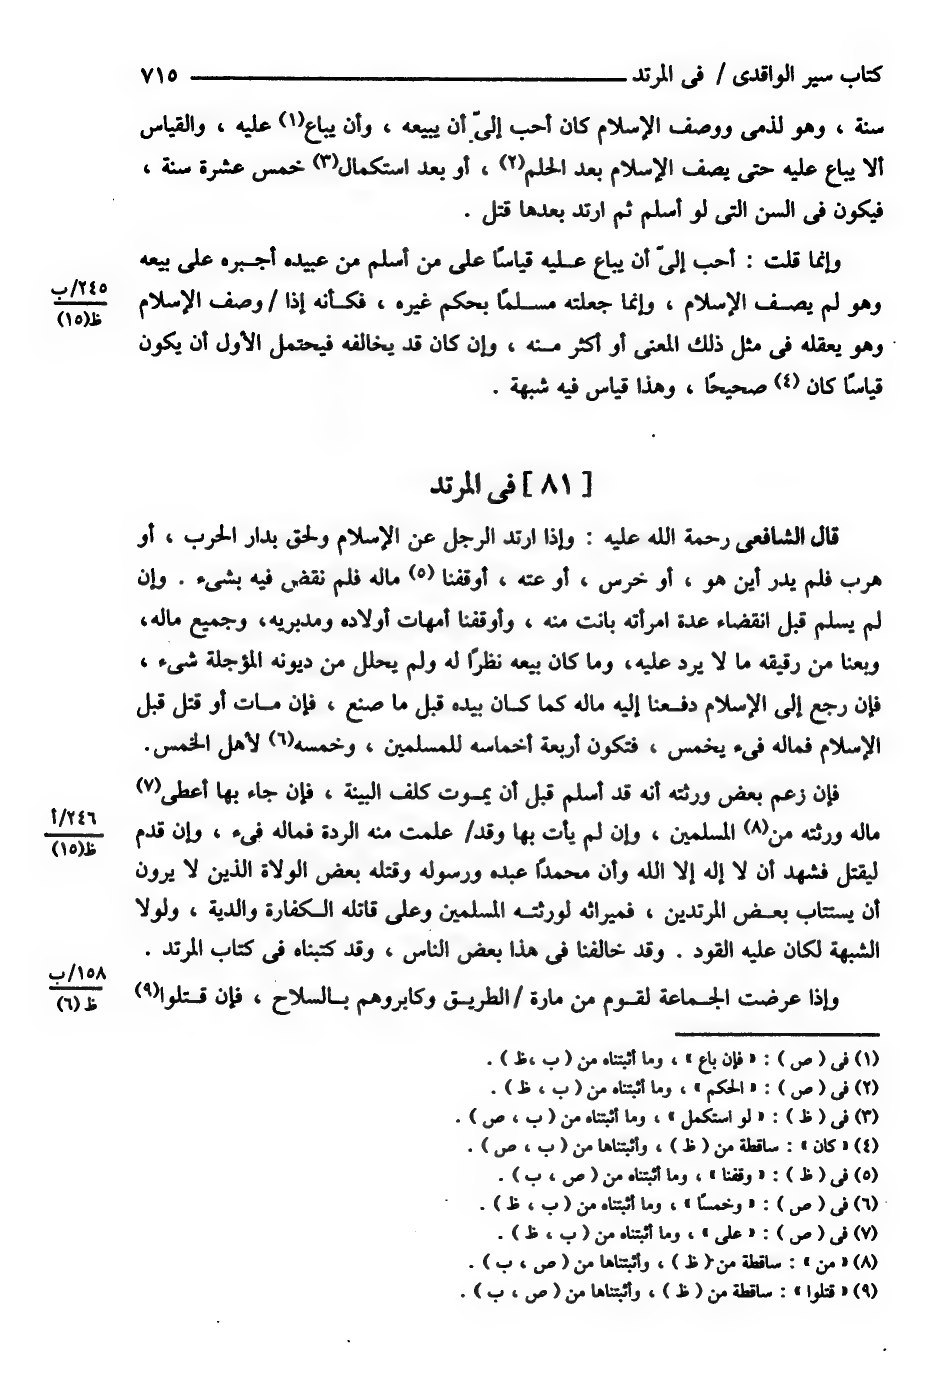 كتاب سير الواقدى / فى المرتد ٧١٥
سنة ، وهو لذمى ووصف الإسلام كان أحب إلىّ أن يبيعه ، وأن يباع(١) عليه ، والقياس
ألا يباع عليه حتى يصف الإسلام بعد الحلم(٢) ، أو بعد استكمال(٣) خمس عشرة سنة ،
فيكون فى السن التى لو أسلم ثم ارتد بعدها قتل .
وإنما قلت : أحب إلىّ أن يباع عليه قياسًا على من أسلم من عبيده أجبره على بيعه
٢٤٥/ب
وهو لم يصف الإسلام ، وإنما جعلته مسلمًا بحكم غيره ، فكأنه إذا / وصف الإسلام
ظ(١٥)
وهو يعقله فى مثل ذلك المعنى أو أكثر منه ، وإن كان قد يخالفه فيحتمل الأول أن يكون
قياسًا كان (٤) صحيحًا ، وهذا قياس فيه شبهة .
[ ٨١ ] فى المرتد
قال الشافعى رحمة الله عليه : وإذا ارتد الرجل عن الإسلام ولحق بدار الحرب ، أو
هرب فلم يدر أين هو ، أو خرس ، أو عته ، أوقفنا (٥) ماله فلم نقض فيه بشىء . وإن
لم يسلم قبل انقضاء عدة امرأته بانت منه ، وأوقفنا أمهات أولاده ومدبريه، وجميع ماله،
وبعنا من رقيقه ما لا يرد عليه، وما كان بيعه نظرًا له ولم يحلل من ديونه المؤجلة شىء ،
فإن رجع إلى الإسلام دفعنا إليه ماله كما كان بيده قبل ما صنع ، فإن مات أو قتل قبل
الإسلام فماله فىء يخمس ، فتكون أربعة أخماسه للمسلمين ، وخمسه(٦) لأهل الخمس.
فإن زعم بعض ورثته أنه قد أسلم قبل أن يموت كلف البينة ، فإن جاء بها أعطى(٧)
٢٤٦/أ
ماله ورثته من(٨) المسلمين ، وإن لم يأت بها وقد/ علمت منه الردة فماله فىء ، وإن قدم
ظ(١٥)
ليقتل فشهد أن لا إله إلا الله وأن محمدًا عبده ورسوله وقتله بعض الولاة الذين لا يرون
أن يستتاب بعض المرتدين ، فميراثه لورثته المسلمين وعلى قاتله الكفارة والدية ، ولولا
الشبهة لكان عليه القود . وقد خالفنا فى هذا بعض الناس ، وقد كتبناه فى كتاب المرتد .
١٥٨/ب
وإذا عرضت الجماعة لقوم من مارة / الطريق وكابروهم بالسلاح ، فإن قتلوا(٩)
ظ (٦)
(١) فى ( ص ) : « فإن باع » ، وما أثبتناه من ( ب ،ظ ) .
(٢) فى ( ص ) : « الحكم » ، وما أثبتناه من ( ب ، ظ ) .
(٣) فى ( ظ ) : « لو استكمل » ، وما أثبتناه من ( ب ، ص ) .
(٤) « كان » : ساقطة من ( ظ ) ، وأثبتناها من ( ب ، ص ) .
(٥) فى ( ظ ) : « وقفنا » ، وما أثبتناه من ( ص ، ب ) .
(٦) فى ( ص ) : « وخمسًا » ، وما أثبتناه من ( ب ، ظ ) .
(٧) فى ( ص ) : « على » ، وما أثبتناه من ( ب ، ظ ) .
(٨) « من » : ساقطة من ( ظ ) ، وأثبتناها من ( ص ، ب ) .
(٩) « قتلوا » : ساقطة من ( ظ ) ، وأثبتناها من ( ص ، ب ) .